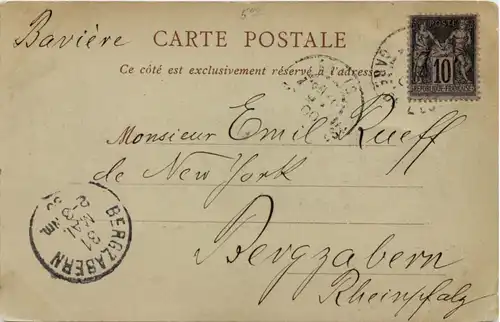 5.00
Bavière
CARTE POSTALE
Ce côté est exclusivement réservé à l'adresse
POSTE
10
REPUBLIQUE FRANÇAISE
Monsieur Emil Rueff
de New York
Bergzabern
Rheinpfalz
BERGZABERN
31
MAI
2-3